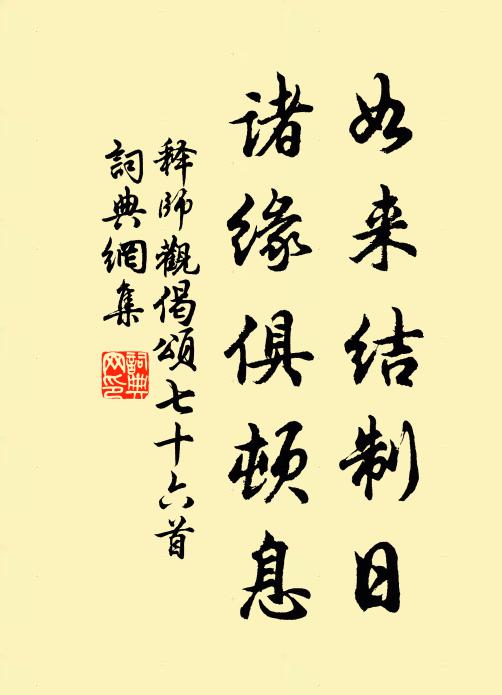 如来结制日
诸缘俱顿息
释師觀偈頌七十六首
詞典網集
詞典网印